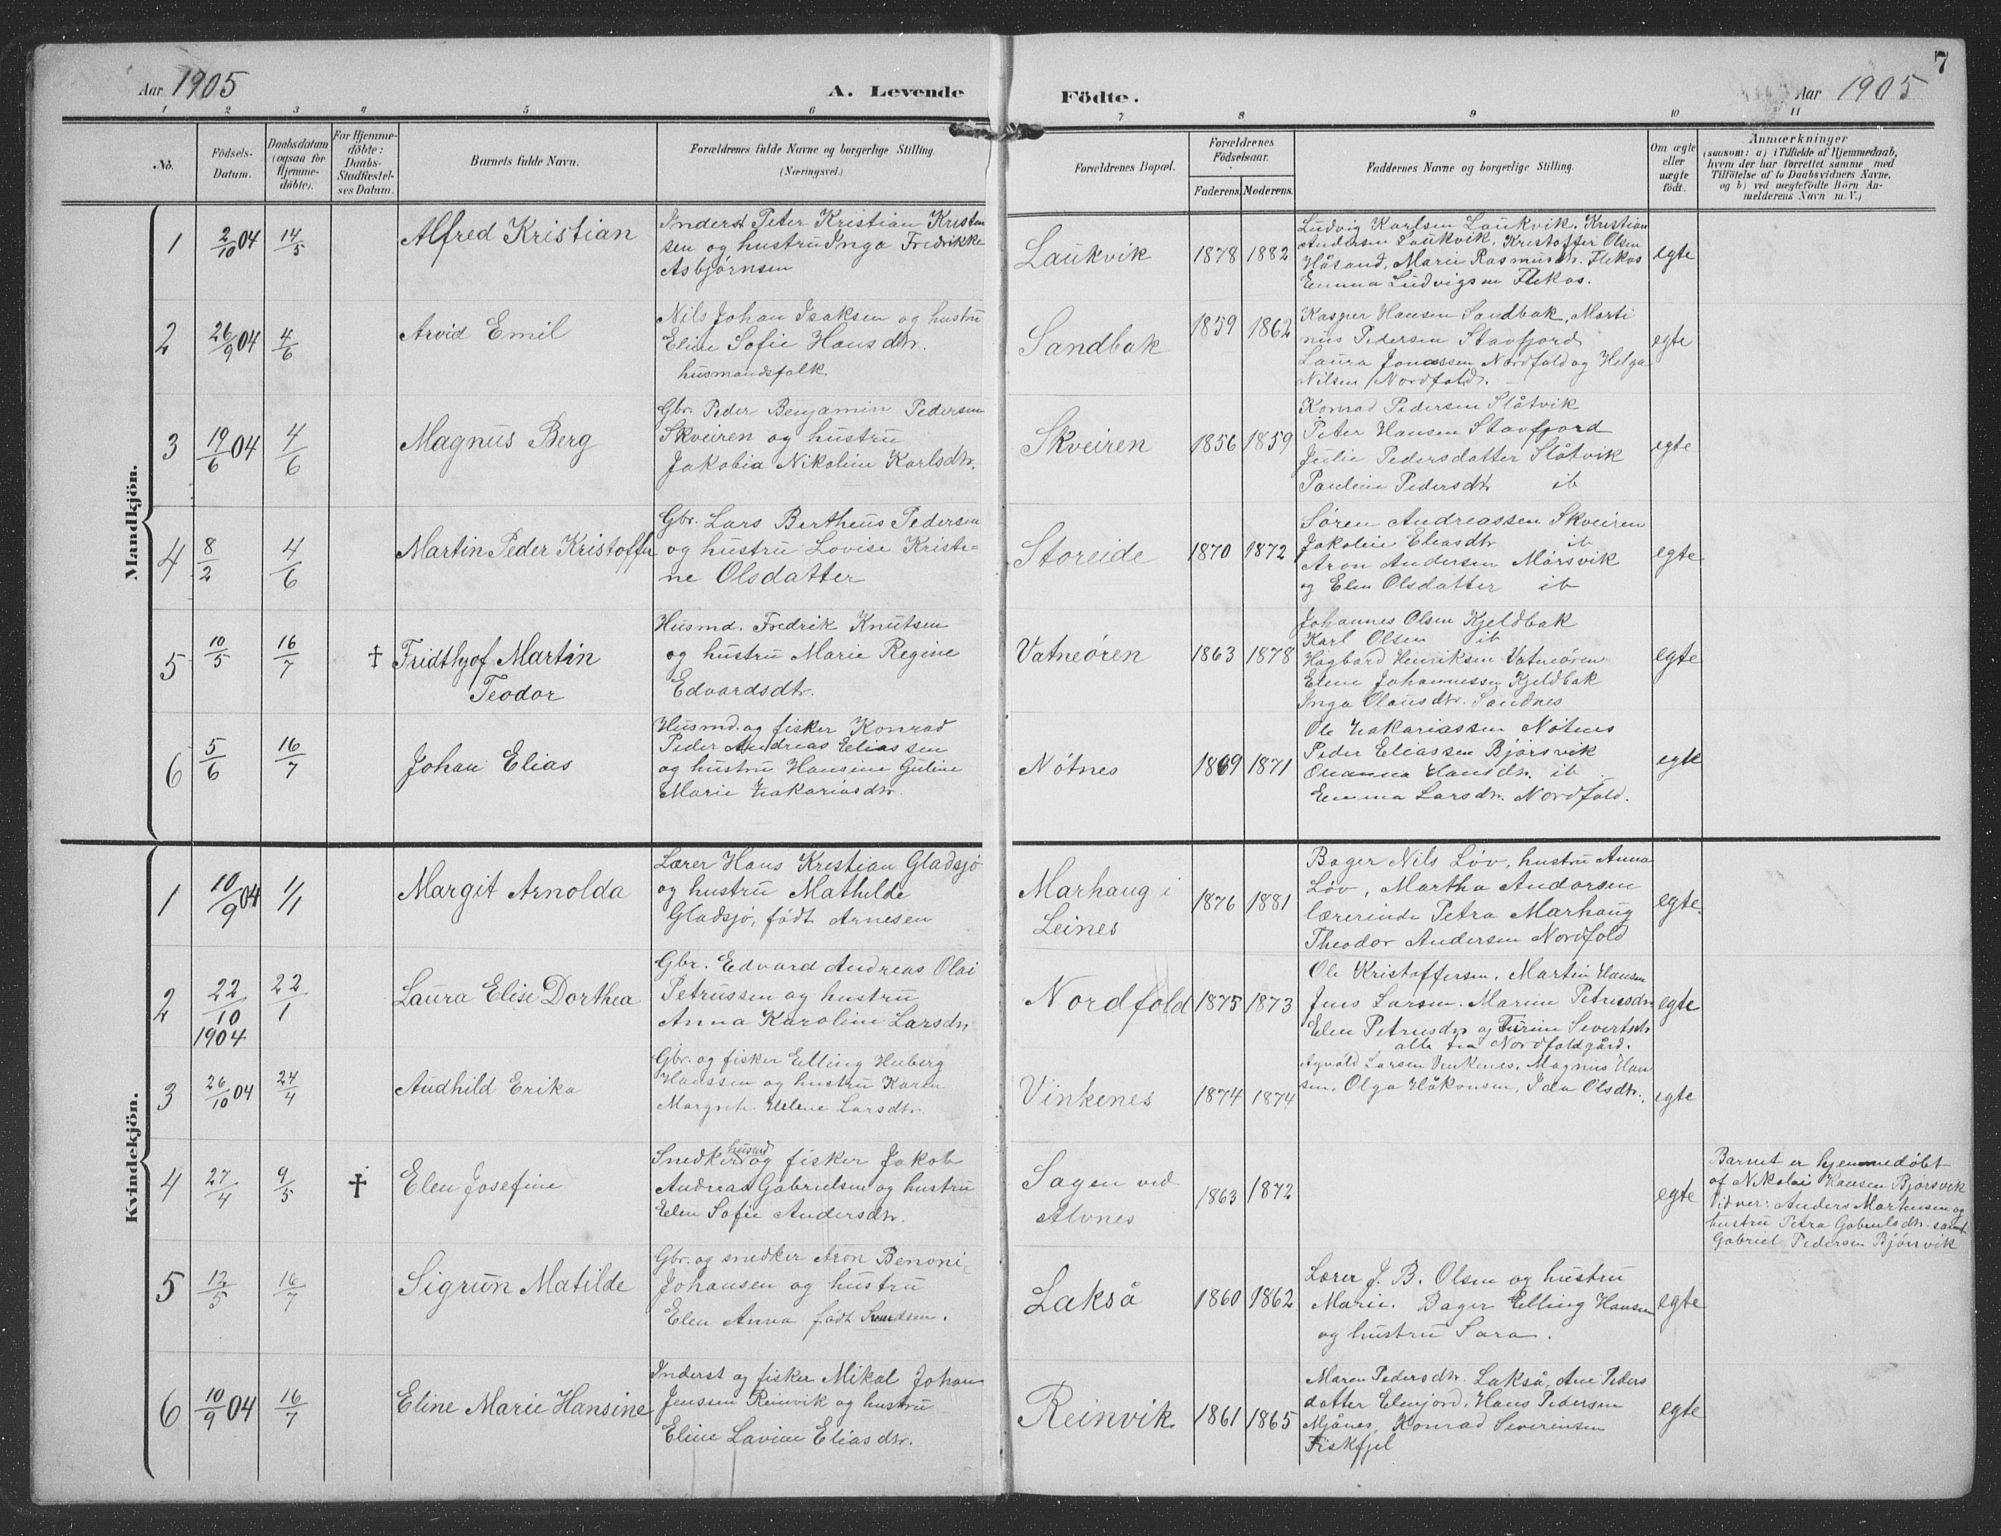 7
Aar 1905
A. Levende
Födte.
Aar 1905
1 2 3 4 5 6 7 8 9 10 11
No.
Födsels-
Datum.
Daabsdatum
(ogsaa for
Hjemme-
döbte).
For Hjemme-
döbte:
Daabs-
Stadfæstel-
ses Datum.
Barnets fulde Navn.
Forældrenes fulde Navne og borgerlige Stilling.
(Næringsvei.)
Forældrenes Bopæl.
Forældrenes
Födselsaar.
Faderens. Moderens.
Faddernes Navne og borgerlige Stilling.
Om ægte
eller
uægte
födt.
Anmærkninger
(saasom: a) i Tilfælde af Hjemmedaab,
hvem der har forrettet samme med
Tilföielse af to Daabsvidners Navne,
og b) ved uægtefödte Börn An-
melderens Navn m. V.)
Mandkjön.
1
2/10 04
14/5
Alfred Kristian
Inderst Peter Kristian Kristen
sen og hustru Inga Fredrikke
Asbjørnsen
Laukvik
1878 1882
Ludvig Karlsen Laukvik. Kristian
Andersen Laukvik. Kristoffer Olsen
Håsand, Marie Rasmusdtr. Flekas
Emma Ludvigsen Flekas.
egte
2
26/9 04
4/6
Arvid Emil
Nils Johan Isaksen og hustru
Eline Sofie Hansdtr.
husmandsfolk
Sandbak
1859 1862
Kasper Hansen Sandbak, Marti
nus Pedersen Stavfjord
Laura Jonassen Nordfold og Helga
Nilsen Nordfold.
egte
3
19/6 04
4/6
Magnus Berg
Gbr. Peder Benjamin Pedersen
Skveiren og hustru
Jakobia Nikoline Karlsdtr.
Skveiren
1856 1859
Konrad Pedersen Slåtvik
Peter Hansen Stavfjord
Julie Pedersdatter Slåtvik
Pauline Pedersdtr ib
egte
4
8/2
4/6
Martin Peder Kristoffer
Gbr. Lars Bertheus Pedersen
og hustru Lovise Kristi-
ne Olsdatter
Storeide
1870 1872
Søren Andreassen Skveiren
Jakobie Eliasdtr ib
Aron Andersen Mørsvik
og Elen Olsdatter ib
egte
5
10/5
16/7
†
Fridthjof Martin
Teodor
Husmd. Fredrik Knutsen
og hustru Marie Regine
Edvardsdtr.
Vatneøren
1863 1878
Johannes Olsen Kjeldbak
Karl Olsen ib
Hagbard Henriksen Vatneøren
Eline Johannessen Kjeldbak
Inga Olausdtr. Sandnes
egte
6
5/6
16/7
Johan Elias
Husmd. og fisker Konrad
Peder Andreas Eliassen
og hustru Hansine Guline
Marie Zakariasdtr.
Nøtnes
1869 1871
Ole Zakariassen Nøtnes
Peder Eliassen Bjørsvik
Hansdtr. ib
Emma Larsdtr. Nordfold.
egte
Kvindekjön.
1
10/9 04
1/1
Margit Arnolda
Lærer Hans Kristian Gladsjø
og hustru Mathilde
Gladsjø, født Arnesen
Marhaug i
Leines
1876 1881
Bager Nils Løv, hustru Anna
Løv, Martha Andorsen
lærerinde Petra Marhaug
Theodor Andersen Nordfold
egte.
2
22/10
1904
22/1
Laura Elise Dorthea
Gbr. Edvard Andreas Olai
Petrussen og hustru
Anna Karoline Larsdtr.
Nordfold
1875 1873
Ole Kristoffersen. Martin Hansen
Jens Larsen. Marine Petrusdtr
Elen Petrusdtr og Turine Sivertsdtr
alle fra Nordfoldgård.
egte
3
26/10 04
24/4
Audhild Erika
Gbr. og fisker Elling Huberg
Hanssen og hustru Karen
Margreth Helene Larsdtr.
Vinkenes
1874 1874
Larsen Vinkenes. Magnus Han
sen, Olga Håkonsen, Ida Olsdtr.
egte
4
27/4
9/5
†
Elen Josefine
Snedker husmd og fisker Jakob
Andreas Gabrielsen og hustru
Elen Sofie Andersdtr.
Sagen ved
Alvnes
1863 1872
egte
Barnet er hjemmedøbt
af Nikolai Hansen Bjørsvik
Vidner: Anders Martensen og
hustru Petra Gabrielsdtr. samt
Gabriel Pedersen Bjørsvik
5
13/5
16/7
Sigrun Matilde
Gbr. og snedker Aron Benoni
Johansen og hustru
Elen Anna født Svendsen.
Lakså
1860 1862
Lærer J. B. Olsen og hustru
Marie. Bager Elling Hansen
og hustru Sara.
egte
6
10/9 04
16/7
Eline Marie Hansine
Inderst og fisker Mikal Johan
Jenssen Reinvik og hustru
Eline Lavine Eliasdtr.
Reinvik
1861 1865
Maren Pedersdtr. Lakså, Ane Peders
datter Elenjord. Hans Pedersen
Mjånes, Konrad Severinsen
Fiskfjel
egte